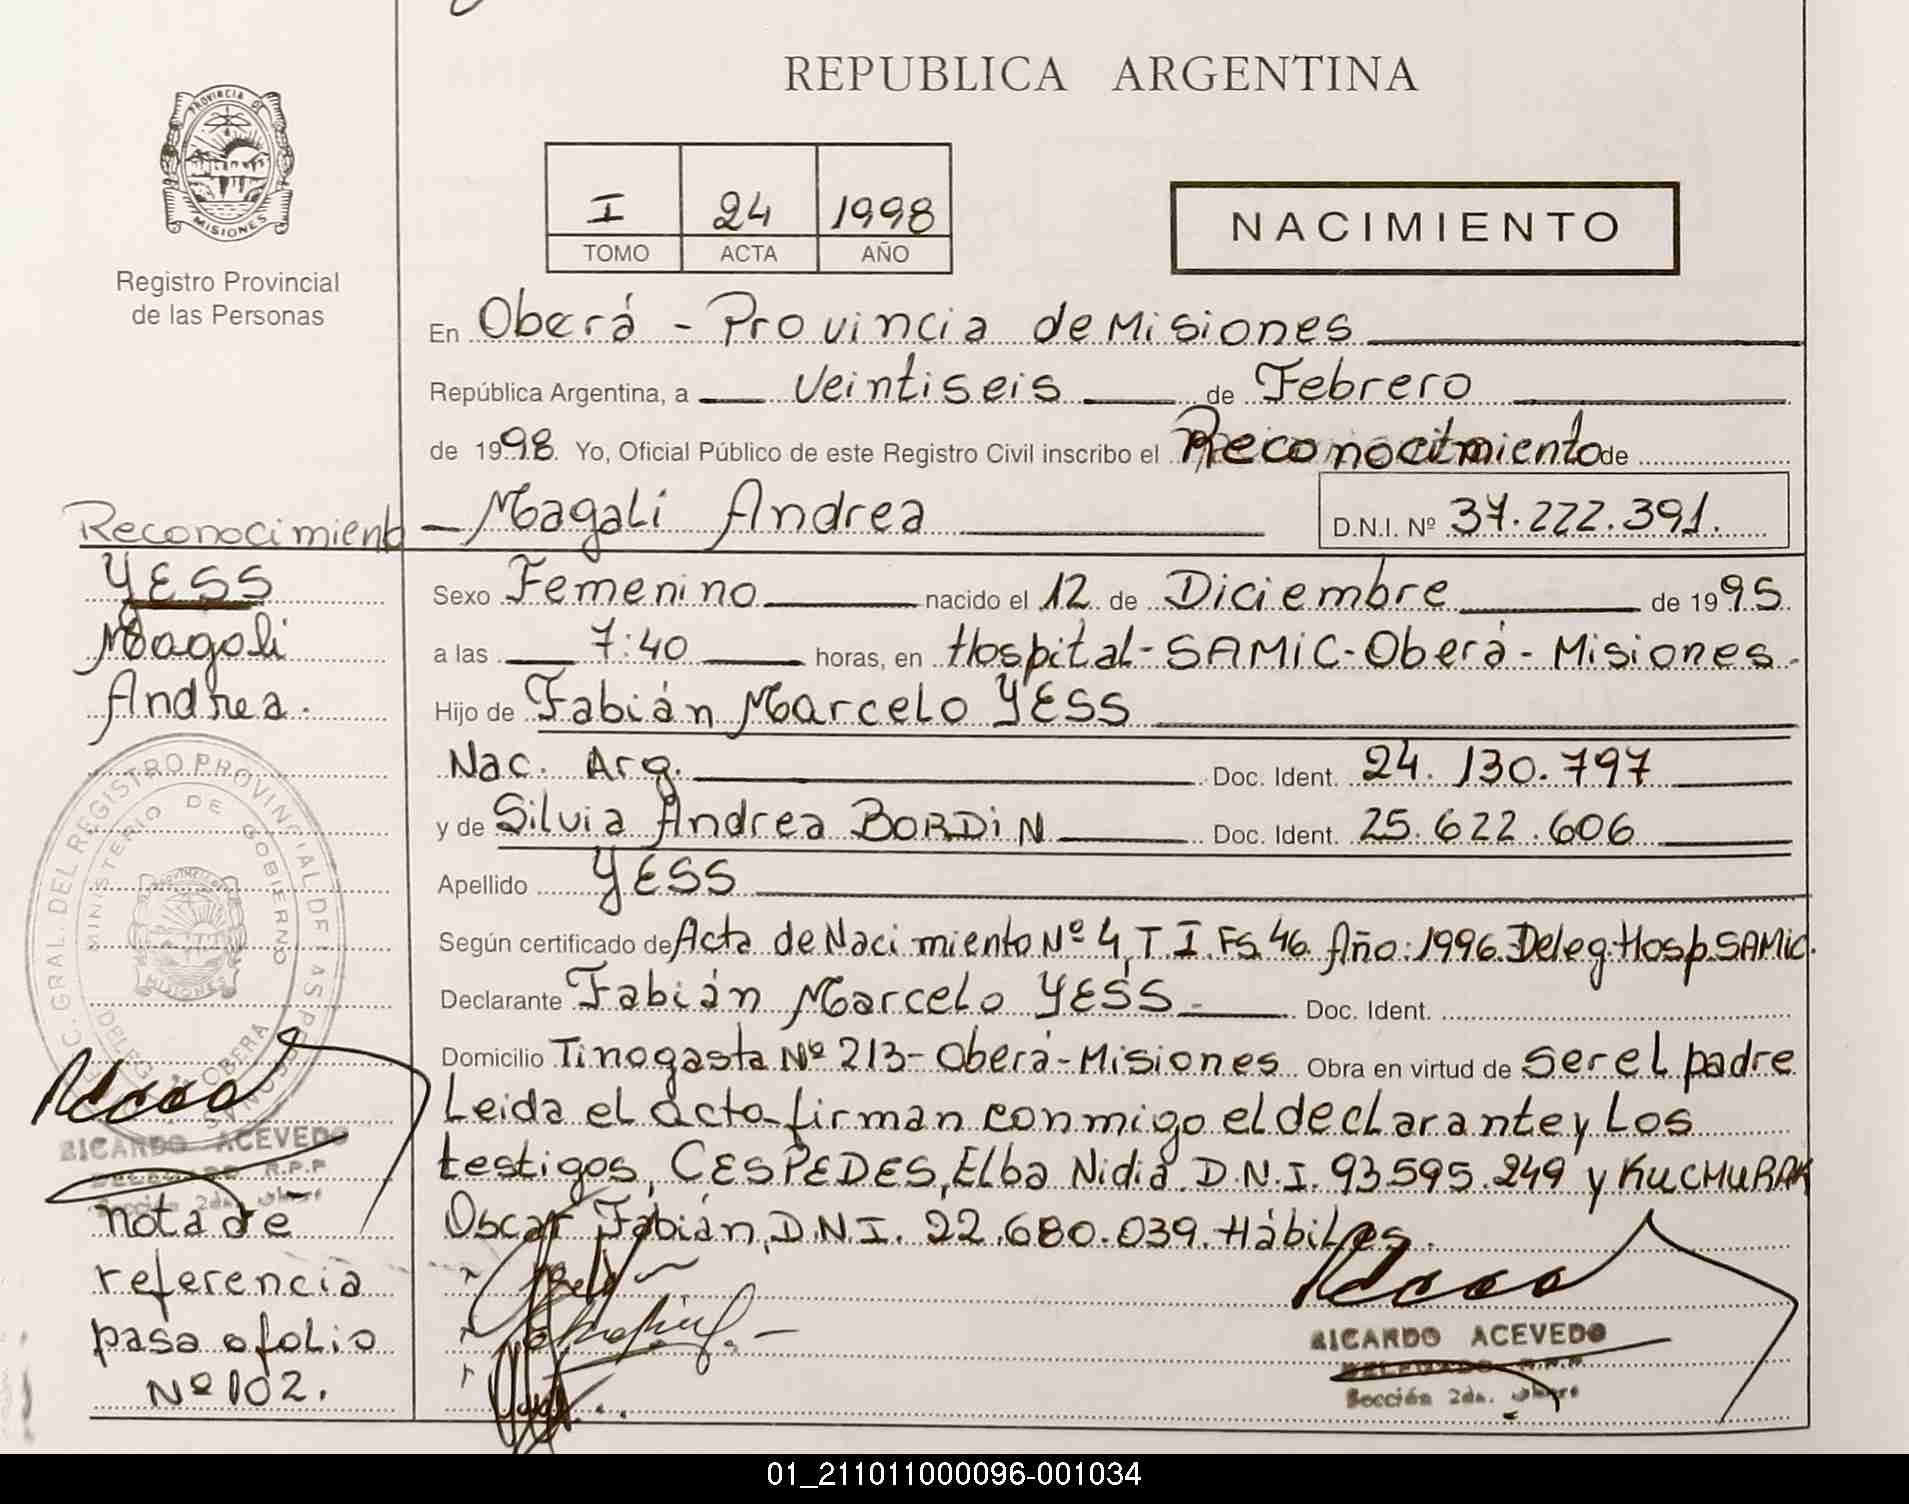 REPUBLICA ARGENTINA
PROVINCIA DE
MISIONES
Registro Provincial
de las Personas
I 24 1998
TOMO ACTA AÑO
NACIMIENTO
En Oberá - Provincia de Misiones
República Argentina, a Veintiseis de Febrero
de 1998. Yo, Oficial Público de este Registro Civil inscribo el Reconocimiento de
Magali Andrea D.N.I. Nº 37.222.391.
Sexo Femenino nacido el 12 de Diciembre de 1995.
a las 7:40 horas, en Hospital-SAMIC-Oberá-Misiones.
Hijo de Fabián Marcelo YESS
Nac. Arg. Doc. Ident. 24.130.797
y de Silvia Andrea BORDIN Doc. Ident. 25.622.606
Apellido YESS
Según certificado de Acta de Nacimiento Nº 4, T.I. Fs. 46. Año: 1996. Deleg. Hosp. SAMIC.
Declarante Fabián Marcelo YESS Doc. Ident.
Domicilio Tinogasta Nº 213-Oberá-Misiones Obra en virtud de ser el padre
Leida el acta firman conmigo el declarante y Los
testigos, CESPEDES, Elba Nidia D.N.I. 93.595.249 y KUCMURAK
Oscar Fabián, D.N.I. 22.680.039. Hábiles.
RICARDO ACEVEDO
DELEGADO R.P.P.
Sección 2da. Oberá
Reconocimiento
YESS
Magali
Andrea.
REGISTRO PROVINCIAL DE LAS PERSONAS
MINISTERIO DE GOBIERNO
OBERA
RICARDO ACEVEDO
DELEGADO R.P.P
Sección 2da. Oberá
nota de
referencia
pasa a folio
Nº 102.
01_211011000096-001034